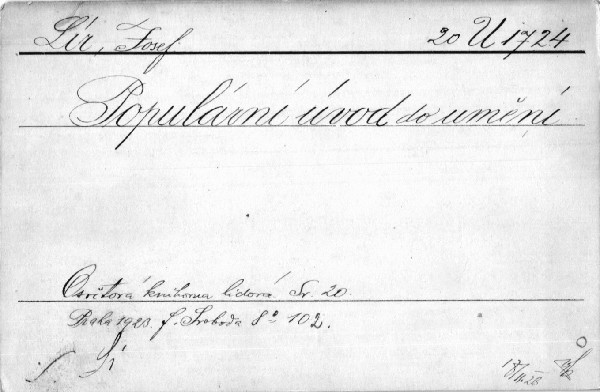 Lír, Josef. 20 U 1724
Populární úvod do umění
Osvětová knihovna lidová. Sv. 20.
Praha 1923. J. Svoboda 8° 102.